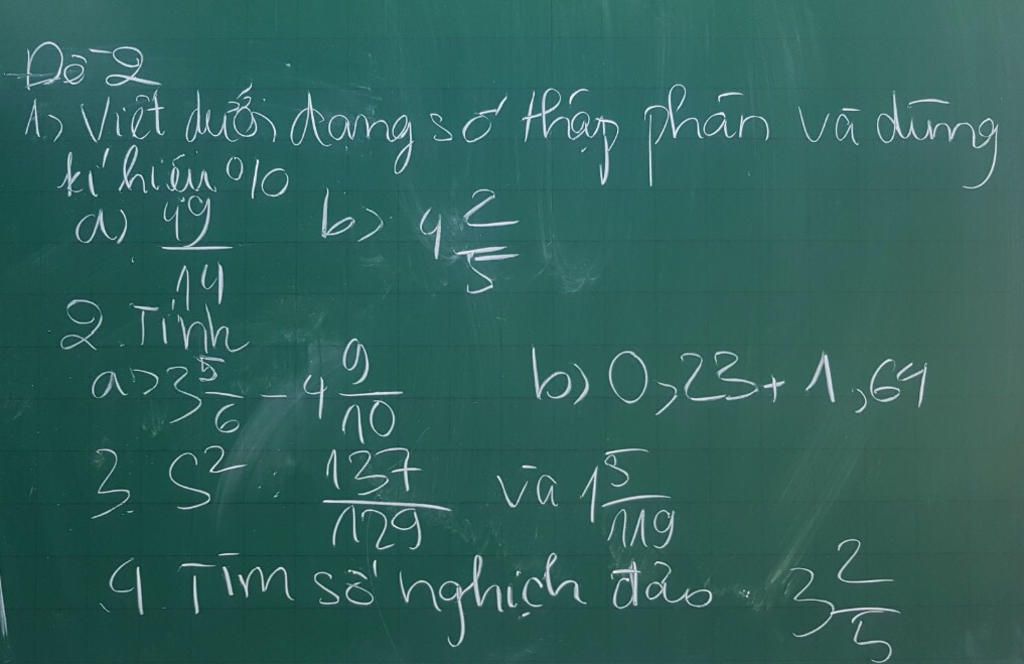 Đề 2
1) Viết dưới dạng số thập phân và dùng
kí hiệu %
a) 49/14 b) 4 2/5
2 Tính
a) 3 5/6 - 4 9/10 b) 0,23 + 1,64
3 S² 137/129 và 1 5/119
4 Tìm số nghịch đảo 3 2/5